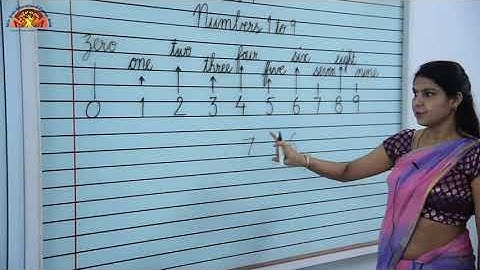 Numbers 1 to 9
zero one two three four five six seven eight nine
0 1 2 3 4 5 6 7 8 9
7